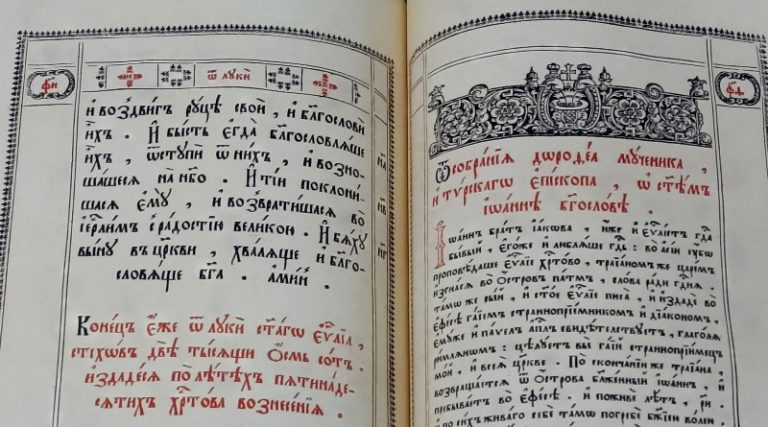 фи
ѿ лꙋки
и воздвигъ рꙋцѣ свои , и благослови
ихъ . И бысть егда благословляше
ихъ , ѿстꙋпи ѿ нихъ , и возно-
шашеся на нбо . И тіи поклони-
шася емꙋ , и возвратишася во
іерлимъ с радостію великою . И бяхꙋ
вынꙋ въ цркви , хваляще и блгo-
словяще бга . амин .
нв
нг
Конецъ еже ѿ лꙋки стагѡ еѵліа ,
стіхѡвъ двѣ тысящи осмь сотъ .
издадеся по лѣтѣхъ пятинаде-
сятихъ хртова вознесенія .
Ѿ собранія дѡроѳеа мꙋченика ,
и тѵрскагѡ епіскопа , ѡ стѣмъ
іѡаннѣ бгословѣ .
Іѡаннъ братъ іакѡва , иже и еѵлістъ гда
бывый , егоже и любляше гдь : во асіи ꙋбѡ
проповѣдаше еѵліе хртово , траіаномъ же царемъ
изгнася во островъ патмъ , слова ради гдня .
тамѡ же сый , и стое еѵліе писа , и издаде во
ефесѣ гаіемъ страннопріимникомъ и діакономъ ,
емꙋже и паѵелъ аплъ свидѣтелствꙋетъ , глаголя
римляномъ : цѣлꙋетъ вы гаій страннопріимецъ
мой , и всея цркве . По скончаніи же траіана ,
возвращается ѿ острова блаженный іѡаннъ , и
пребываетъ во ефесѣ . и поживе лѣтъ , рк .
по сихъ живаго себе тамѡ погребе бжіею волею ,